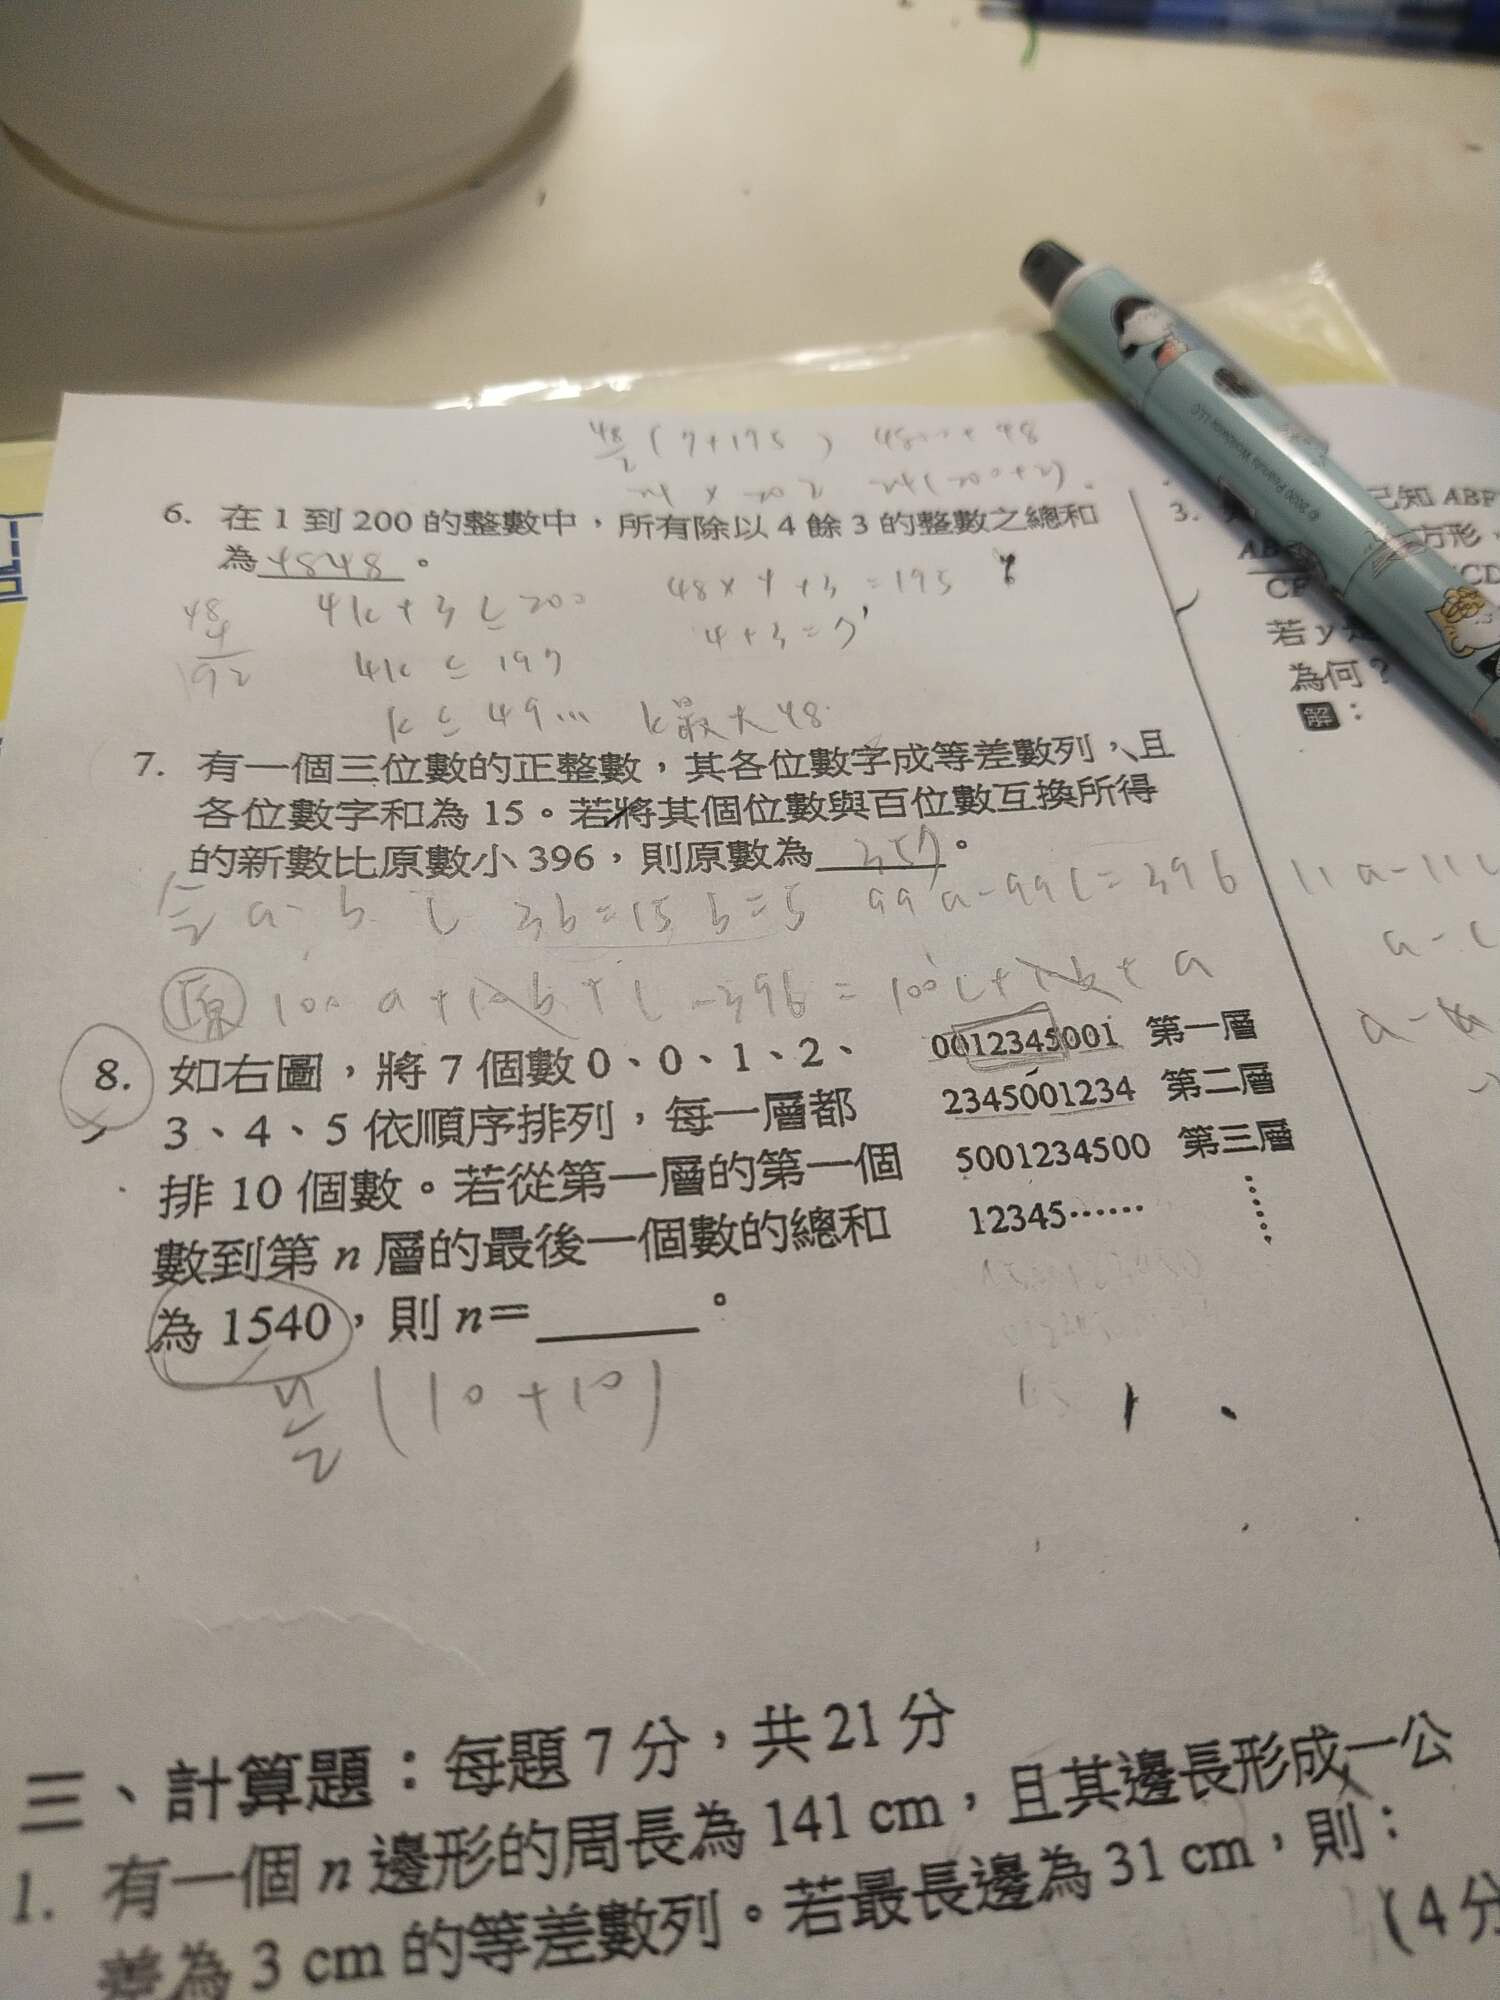 48/2 (7+195)
24 × 202 24(200+2)
6. 在 1 到 200 的整數中，所有除以 4 餘 3 的整數之總和
為 4848 。
4k+3 ≤ 200 48×4+3=195
4k ≤ 197 4+3=7
k ≤ 49... k最大48
48
4
192
7. 有一個三位數的正整數，其各位數字成等差數列，且
各位數字和為 15。若將其個位數與百位數互換所得
的新數比原數小 396，則原數為 357 。
a b c 3b=15 b=5 99a-99c=396
原 100a+10b+c-396=100c+10b+a
8. 如右圖，將 7 個數 0、0、1、2、
3、4、5 依順序排列，每一層都
排 10 個數。若從第一層的第一個
數到第 n 層的最後一個數的總和
為 1540，則 n＝______。
n/2 (10+10)
0012345001 第一層
2345001234 第二層
5001234500 第三層
12345……
三、計算題：每題 7 分，共 21 分
1. 有一個 n 邊形的周長為 141 cm，且其邊長形成一公
差為 3 cm 的等差數列。若最長邊為 31 cm，則：
(4分
3.
已知 ABF
方形，
CD
若 y
為何？
解：